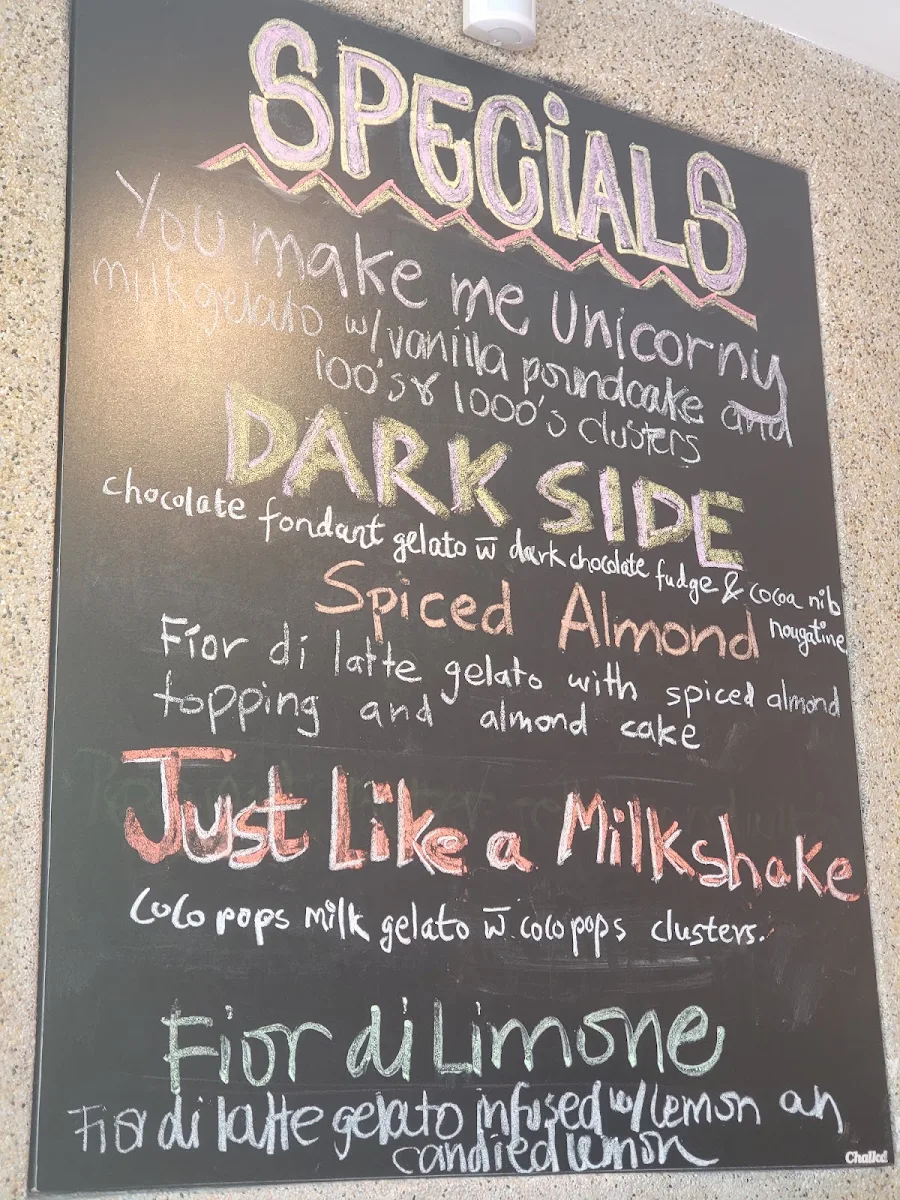 SPECiALS
You make me Unicorny
milk gelato w/vanilla poundcake and
100's & 1000's clusters
DARK SIDE
chocolate fondant gelato w̅ dark chocolate fudge & cocoa nib
nougatine
Spiced Almond
Fior di latte gelato with spiced almond
topping and almond cake
Just Like a Milkshake
Coco pops milk gelato w̅ coco pops clusters.
Fior di Limone
Fior di latte gelato infused w/ lemon an
candied lemon
Chalkd